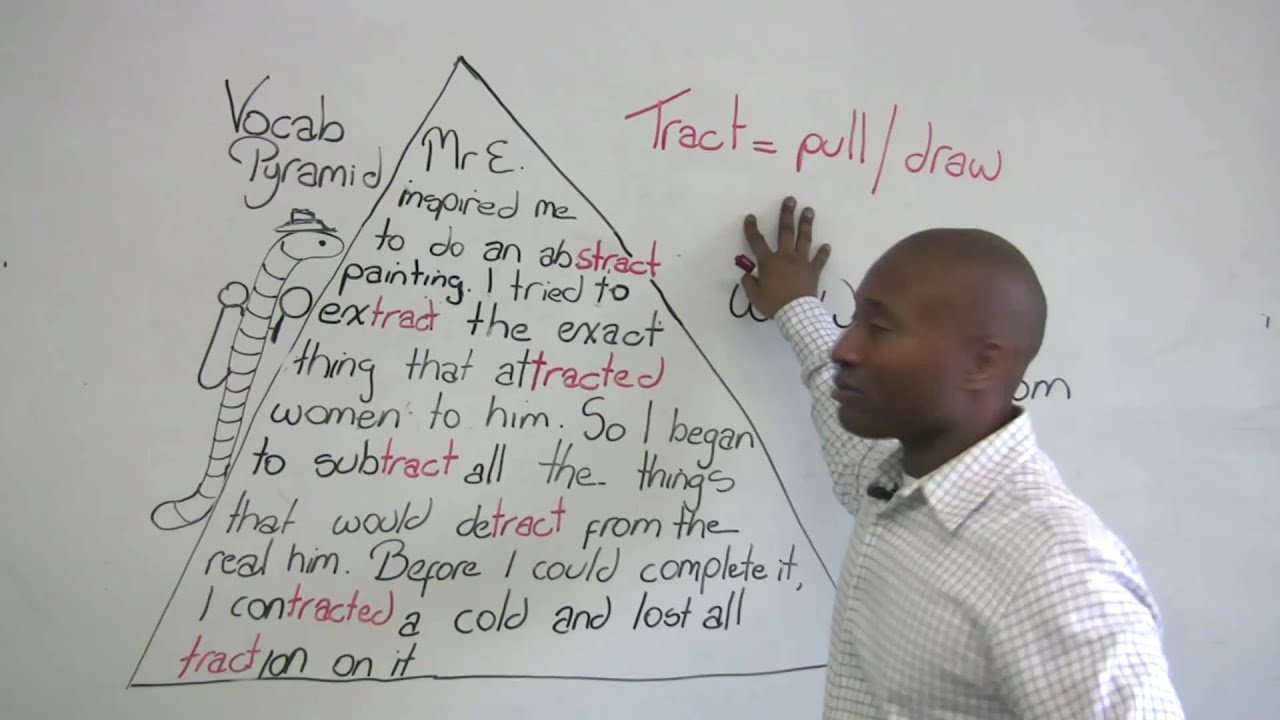 Vocab
Pyramid
Tract = pull/draw
Mr E.
inspired me
to do an abstract
painting. I tried to
extract the exact
thing that attracted
women to him. So I began
to subtract all the things
that would detract from the
real him. Before I could complete it,
I contracted a cold and lost all
traction on it
om